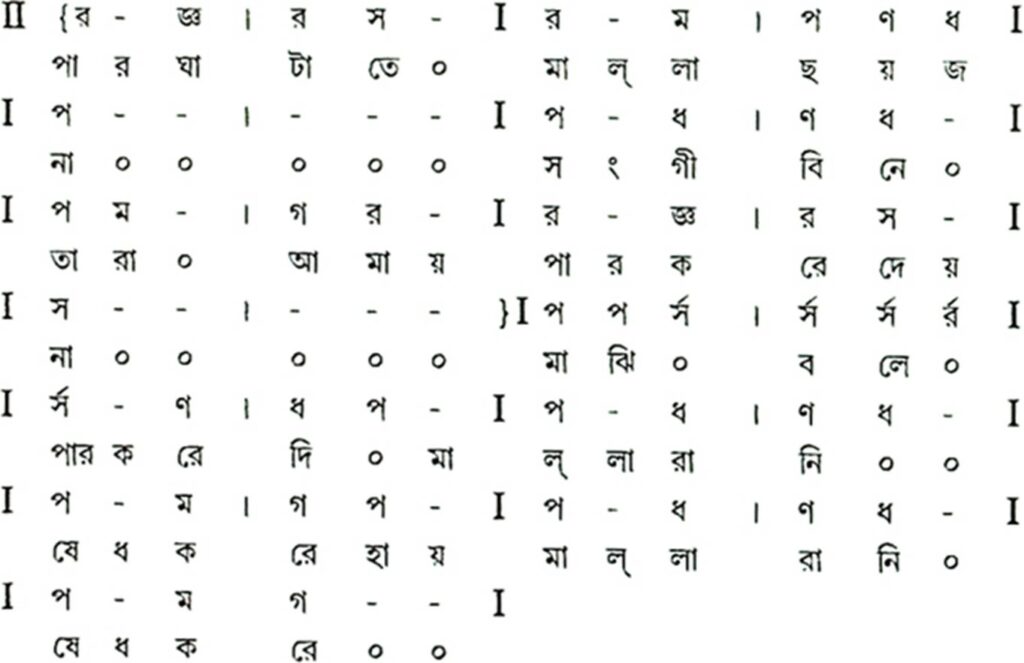 II {র - জ্ঞ । র স - I র - ম । প ণ ধ I
পা র ঘা টা তে ০ মা ল্ লা ছ য় জ
I প - - । - - - I প - ধ । ণ ধ - I
না ০ ০ ০ ০ ০ স ং গী বি নে ০
I প ম - । গ র - I র - জ্ঞ । র স - I
তা রা ০ আ মা য় পা র ক রে দে য়
I স - - । - - - }I প প র্স । র্স র্স র্র I
না ০ ০ ০ ০ ০ মা ঝি ০ ব লে ০
I র্স - ণ । ধ প - I প - ধ । ণ ধ - I
পার ক রে দি ০ মা ল্ লা রা নি ০ ০
I প - ম । গ প - I প - ধ । ণ ধ - I
ষে ধ ক রে হা য় মা ল্ লা রা নি ০
I প - ম গ - - I
ষে ধ ক রে ০ ০